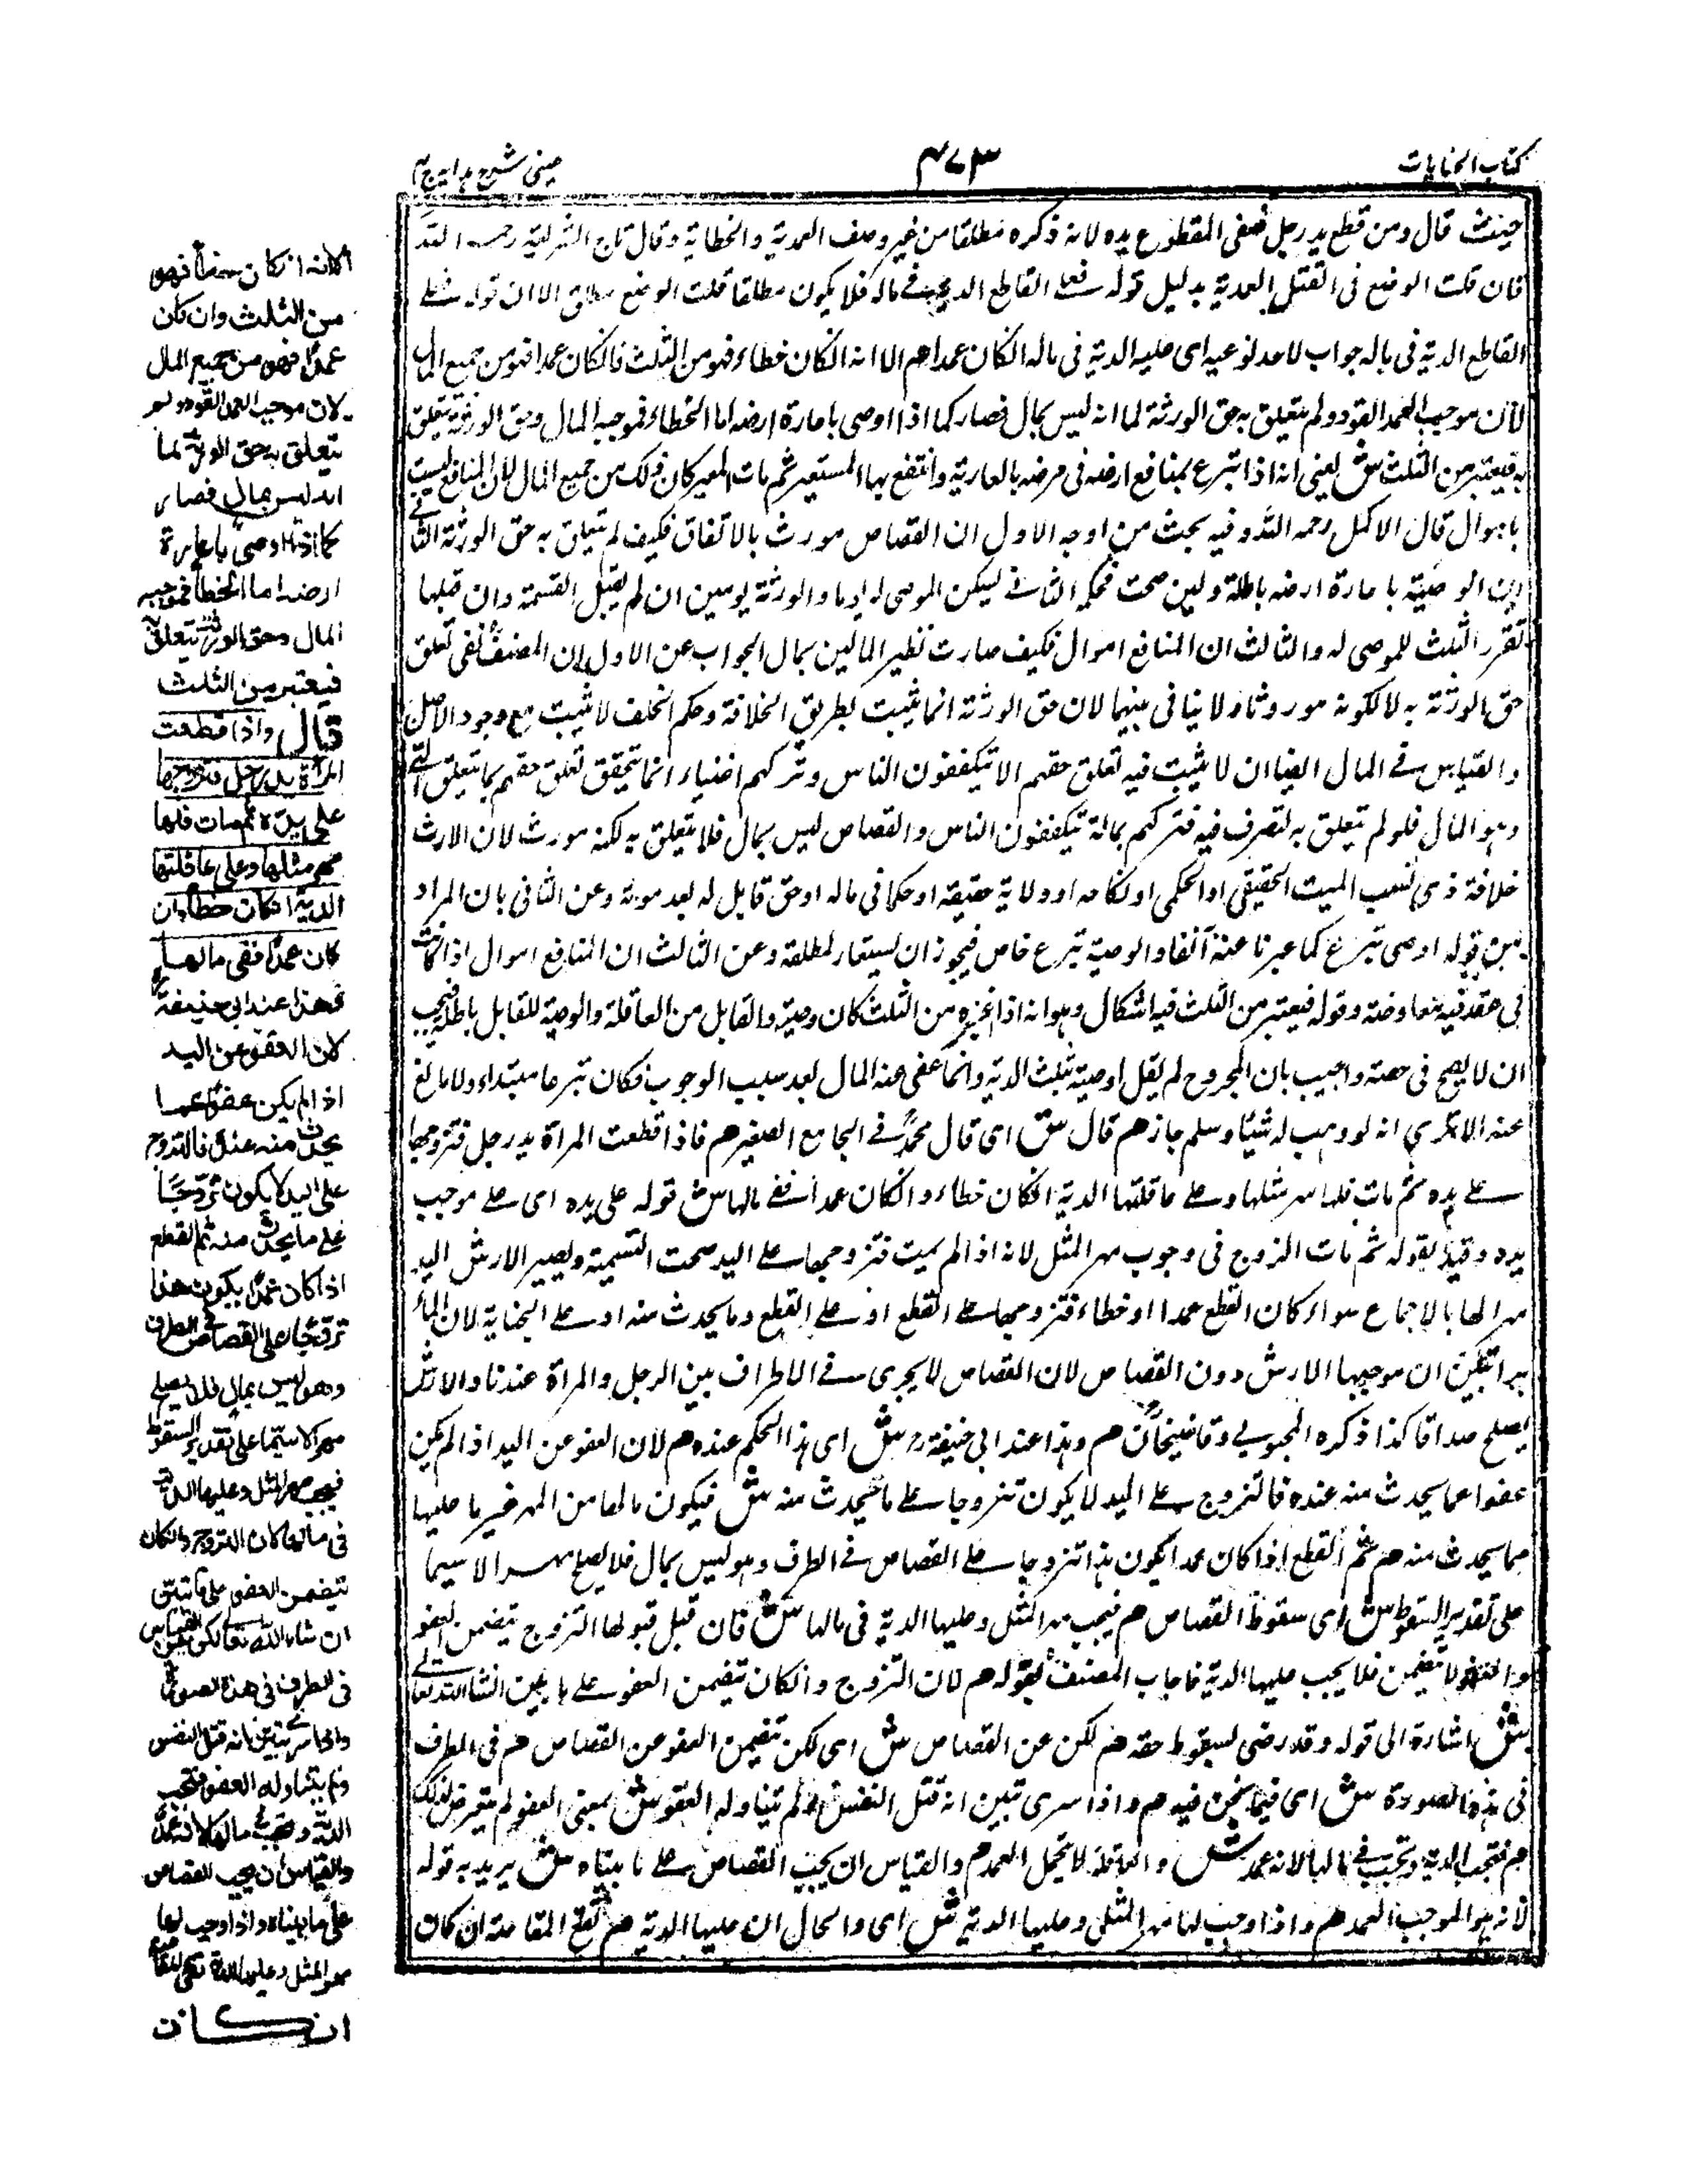 كتاب الجنايات
٤٧٣
عينى شرح هدايه ج ٤
حيث قال ومن قطع يد رجل فعفى المقطوع يده لانه ذكره مطلقا من غير وصف العمدية والخطائية وقال تاج الشريعة رحمه الله
فان قلت الوضع فى القتل العمدية بدليل قوله فعلى القاطع الدية فى ماله فلا يكون مطلقا قلت الوضع مطلق الا ان قوله فعلى
القاطع الدية فى ماله جواب لاحد نوعيه اى عليه الدية فى ماله ان كان عمدا هم الا انه ان كان خطاء فهو من الثلث وان كان عمدا فهو من جميع المال
لان موجب العمد القود ولم يتعلق به حق الورثة لما انه ليس بمال فصار كما اذا اوصى باعارة ارضه اما الخطاء فموجبه المال وحق الورثة يتعلق
به فيعتبر من الثلث ش يعنى انه اذا تبرع بمنافع ارضه فى مرضه بالعارية وانتفع بها المستعير ثم مات المعير كان ذلك من جميع المال لان المنافع ليست
باموال قال الاكمل رحمه الله وفيه بحث من اوجه الاول ان القصاص مورث بالاتفاق فكيف لم يتعلق به حق الورثة الثانى
ان الوصية باعارة ارضه باطلة ولئن صحت فحكم الثانى ليسكن الموصى له يوما والورثة يومين ان لم يقبل القسمة وان قبلها
تقرر الثلث للموصى له والثالث ان المنافع اموال فكيف صارت نظير ما ليس بمال الجواب عن الاول ان المصنف نفى تعلق
حق الورثة به لا لكونه موروثا ولا ينافى بينهما لان حق الورثة انما يثبت بطريق الخلافة وحكم الخلف لا يثبت مع وجود الاصل
والقياس فى المال ايضا ان لا يثبت فيه تعلق حقهم الا يتكففون الناس وتركهم اغنياء انما يتحقق تعلق حقهم بما يتعلق
وهو المال فلو لم يتعلق به لتصرف فيه فتركهم بحالة يتكففون الناس والقصاص ليس بمال فلا يتعلق به لكنه مورث لان الارث
خلافة ذى نسب الميت الحقيقى او الحكمى او نكاحه او ولاية حقيقة او حكما فى ماله او حق قابل له بعد موته وعن الثانى بان المراد
من قوله اوصى تبرع كما عبرنا عنه آنفا والوصية تبرع خاص فيجوز ان يستعار لمطلقه وعن الثالث ان المنافع اموال اذا كانت
فى عقد فيه معاوضة وقوله فيعتبر من الثلث فيه اشكال وهو انه اذا اعتبره من الثلث كان وصية والقاتل من العاقلة والوصية للقاتل باطلة فيجب
ان لا يصح فى حصته واجيب بان المجروح لم يقل اوصيت بثلث الدية وانما عفى عنه المال بعد سبب الوجوب فكان تبرعا مبتداء ولا مانع
عنه الا ترى انه لو وهب له شيئا وسلم جاز هم قال ش اى قال محمد فى الجامع الصغير هم فاذا قطعت المراة يد رجل فتزوجها
على يده ثم مات فلها مهر مثلها وعلى عاقلتها الدية ان كان خطاء وان كان عمدا ففى مالها ش قوله على يده اى على موجب
يده وقيد بقوله ثم مات الزوج فى وجوب مهر المثل لانه اذا لم يمت فتزوجها على اليد صحت التسمية ويصير الارش اليد
مهرا لها بالاجماع سواء كان القطع عمدا او خطاء فتزوجها على القطع او على القطع وما يحدث منه او على الجناية لان
يتبين ان موجبها الارش دون القصاص لان القصاص لا يجرى فى الاطراف بين الرجل والمراة عندنا والارش
يصلح صداقا كذا ذكره المحبوبى وقاضيخان هم وهذا عند ابى حنيفة رح ش اى هذا الحكم عنده هم لان العفو عن اليد اذا لم يكن
عفوا عما يحدث منه عنده فالتزوج على اليد لا يكون تزوجا على ما يحدث منه ش فيكون مالها من المهر غير ما عليها
مما يحدث منه هم ثم القطع اذا كان عمدا يكون هذا تزوجا على القصاص فى الطرف وهو ليس بمال فلا يصلح مهرا لا سيما
على تقدير السقوط ش اى سقوط القصاص هم فيجب مهر المثل وعليها الدية فى مالها ش فان قيل قبولها التزوج يتضمن العفو
فلا يجب عليها الدية فاجاب المصنف بقوله هم لان التزوج وان كان يتضمن العفو على ما نبين ان شاء الله تعالى
ش اشارة الى قوله وقد رضى لسقوط حقه هم لكن عن القصاص ش اى لكن تضمن العفو عن القصاص هم فى الطرف
فى هذه الصورة ش اى فيما نحن فيه هم واذا سرى تبين انه قتل النفس ولم يتناوله العفو ش يعنى العفو لم يتعرض لذلك
هم فتجب الدية وتجب فى مالها لانه عمد ش والعاقلة لا تتحمل العمد هم والقياس ان يجب القصاص على ما بيناه ش يريد به قوله
لانه هو الموجب للعمد هم واذا وجب لها مهر المثل وعليها الدية ش اى والحال ان عليها الدية هم تقع المقاصة ان كان
الا انه ان كان خطأ فهو
من الثلث وان كان
عمدًا فهو من جميع المال
لان موجب العمد القود ولم
يتعلق به حق الورثة لما
انه ليس بمال فصار
كما اذا اوصى باعارة
ارضه اما الخطأ فموجبه
المال وحق الورثة يتعلق به
فيعتبر من الثلث
قال واذا قطعت
المرأة يد رجل فتزوجها
على يده ثم مات فلها
مهر مثلها وعلى عاقلتها
الدية ان كان خطأ وان
كان عمدًا ففى مالها
وهذا عند ابى حنيفة
لان العفو عن اليد
اذا لم يكن عفوًا عما
يحدث منه عنده فالتزوج
على اليد لا يكون تزوجًا
على ما يحدث منه ثم القطع
اذا كان عمدًا يكون هذا
تزوجًا على القصاص فى الطرف
وهو ليس بمال فلا يصلح
مهرًا لا سيما على تقدير السقوط
فيجب مهر المثل وعليها الدية
فى مالها لان التزوج وان كان
يتضمن العفو على ما نبين
ان شاء الله تعالى لكن عن القصاص
فى الطرف فى هذه الصورة
واذا سرى تبين انه قتل النفس
ولم يتناوله العفو فتجب
الدية وتجب فى مالها لانه عمد
والقياس ان يجب القصاص
على ما بيناه واذا وجب لها
مهر المثل وعليها الدية تقع المقاصة
ان كان